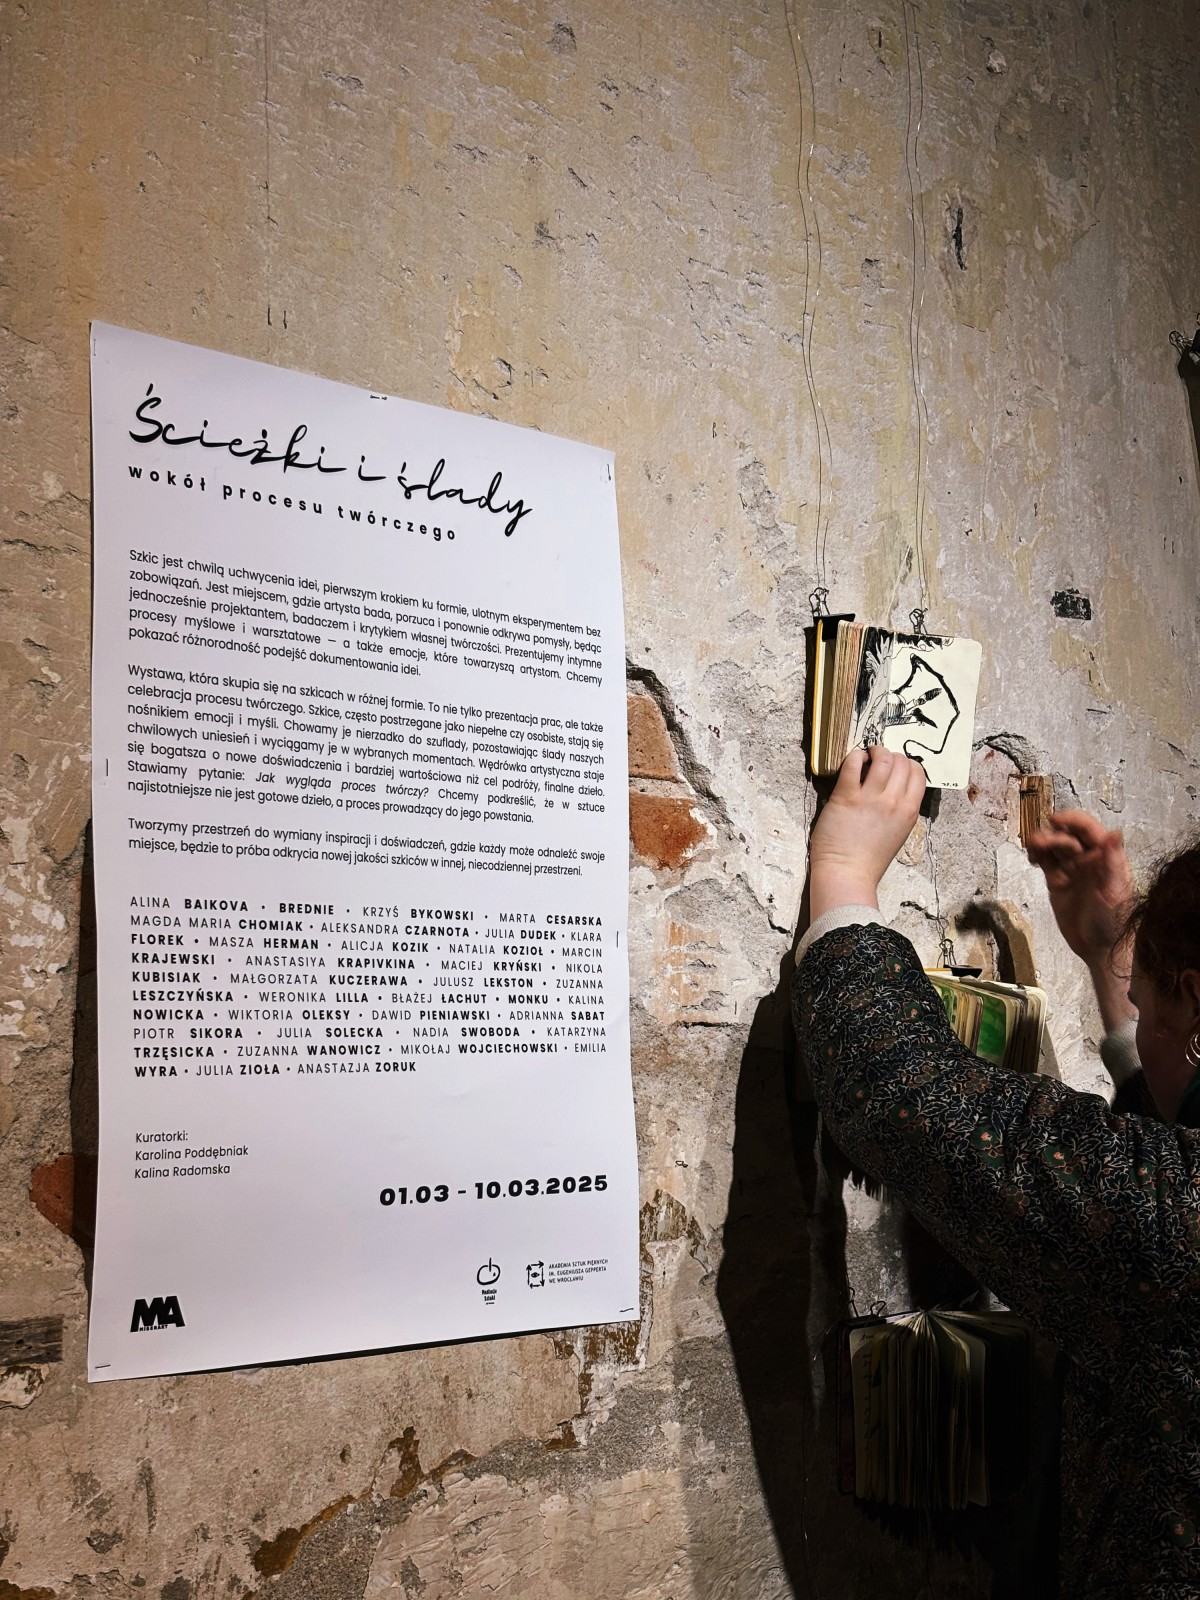 Ścieżki i ślady
wokół procesu twórczego
Szkic jest chwilą uchwycenia idei, pierwszym krokiem ku formie, ulotnym eksperymentem bez
zobowiązań. Jest miejscem, gdzie artysta bada, porzuca i ponownie odkrywa pomysły, będąc
jednocześnie projektantem, badaczem i krytykiem własnej twórczości. Prezentujemy intymne
procesy myślowe i warsztatowe – a także emocje, które towarzyszą artystom. Chcemy
pokazać różnorodność podejść dokumentowania idei.
Wystawa, która skupia się na szkicach w różnej formie. To nie tylko prezentacja prac, ale także
celebracja procesu twórczego. Szkice, często postrzegane jako niepełne czy osobiste, stają się
nośnikiem emocji i myśli. Chowamy je nierzadko do szuflady, pozostawiając ślady naszych
chwilowych uniesień i wyciągamy je w wybranych momentach. Wędrówka artystyczna staje
się bogatsza o nowe doświadczenia i bardziej wartościowa niż cel podróży, finalne dzieło.
Stawiamy pytanie: Jak wygląda proces twórczy? Chcemy podkreślić, że w sztuce
najistotniejsze nie jest gotowe dzieło, a proces prowadzący do jego powstania.
Tworzymy przestrzeń do wymiany inspiracji i doświadczeń, gdzie każdy może odnaleźć swoje
miejsce, będzie to próba odkrycia nowej jakości szkiców w innej, niecodziennej przestrzeni.
ALINA BAIKOVA • BREDNIE • KRZYŚ BYKOWSKI • MARTA CESARSKA
MAGDA MARIA CHOMIAK • ALEKSANDRA CZARNOTA • JULIA DUDEK • KLARA
FLOREK • MASZA HERMAN • ALICJA KOZIK • NATALIA KOZIOŁ • MARCIN
KRAJEWSKI • ANASTASIYA KRAPIVKINA • MACIEJ KRYŃSKI • NIKOLA
KUBISIAK • MAŁGORZATA KUCZERAWA • JULUSZ LEKSTON • ZUZANNA
LESZCZYŃSKA • WERONIKA LILLA • BŁAŻEJ ŁACHUT • MONKU • KALINA
NOWICKA • WIKTORIA OLEKSY • DAWID PIENIAWSKI • ADRIANNA SABAT
PIOTR SIKORA • JULIA SOLECKA • NADIA SWOBODA • KATARZYNA
TRZĘSICKA • ZUZANNA WANOWICZ • MIKOŁAJ WOJCIECHOWSKI • EMILIA
WYRA • JULIA ZIOŁA • ANASTAZJA ZORUK
Kuratorki:
Karolina Poddębniak
Kalina Radomska
01.03 - 10.03.2025
Mediacja
Sztuki
AKADEMIA SZTUK PIĘKNYCH
IM. EUGENIUSZA GEPPERTA
WE WROCŁAWIU
MA